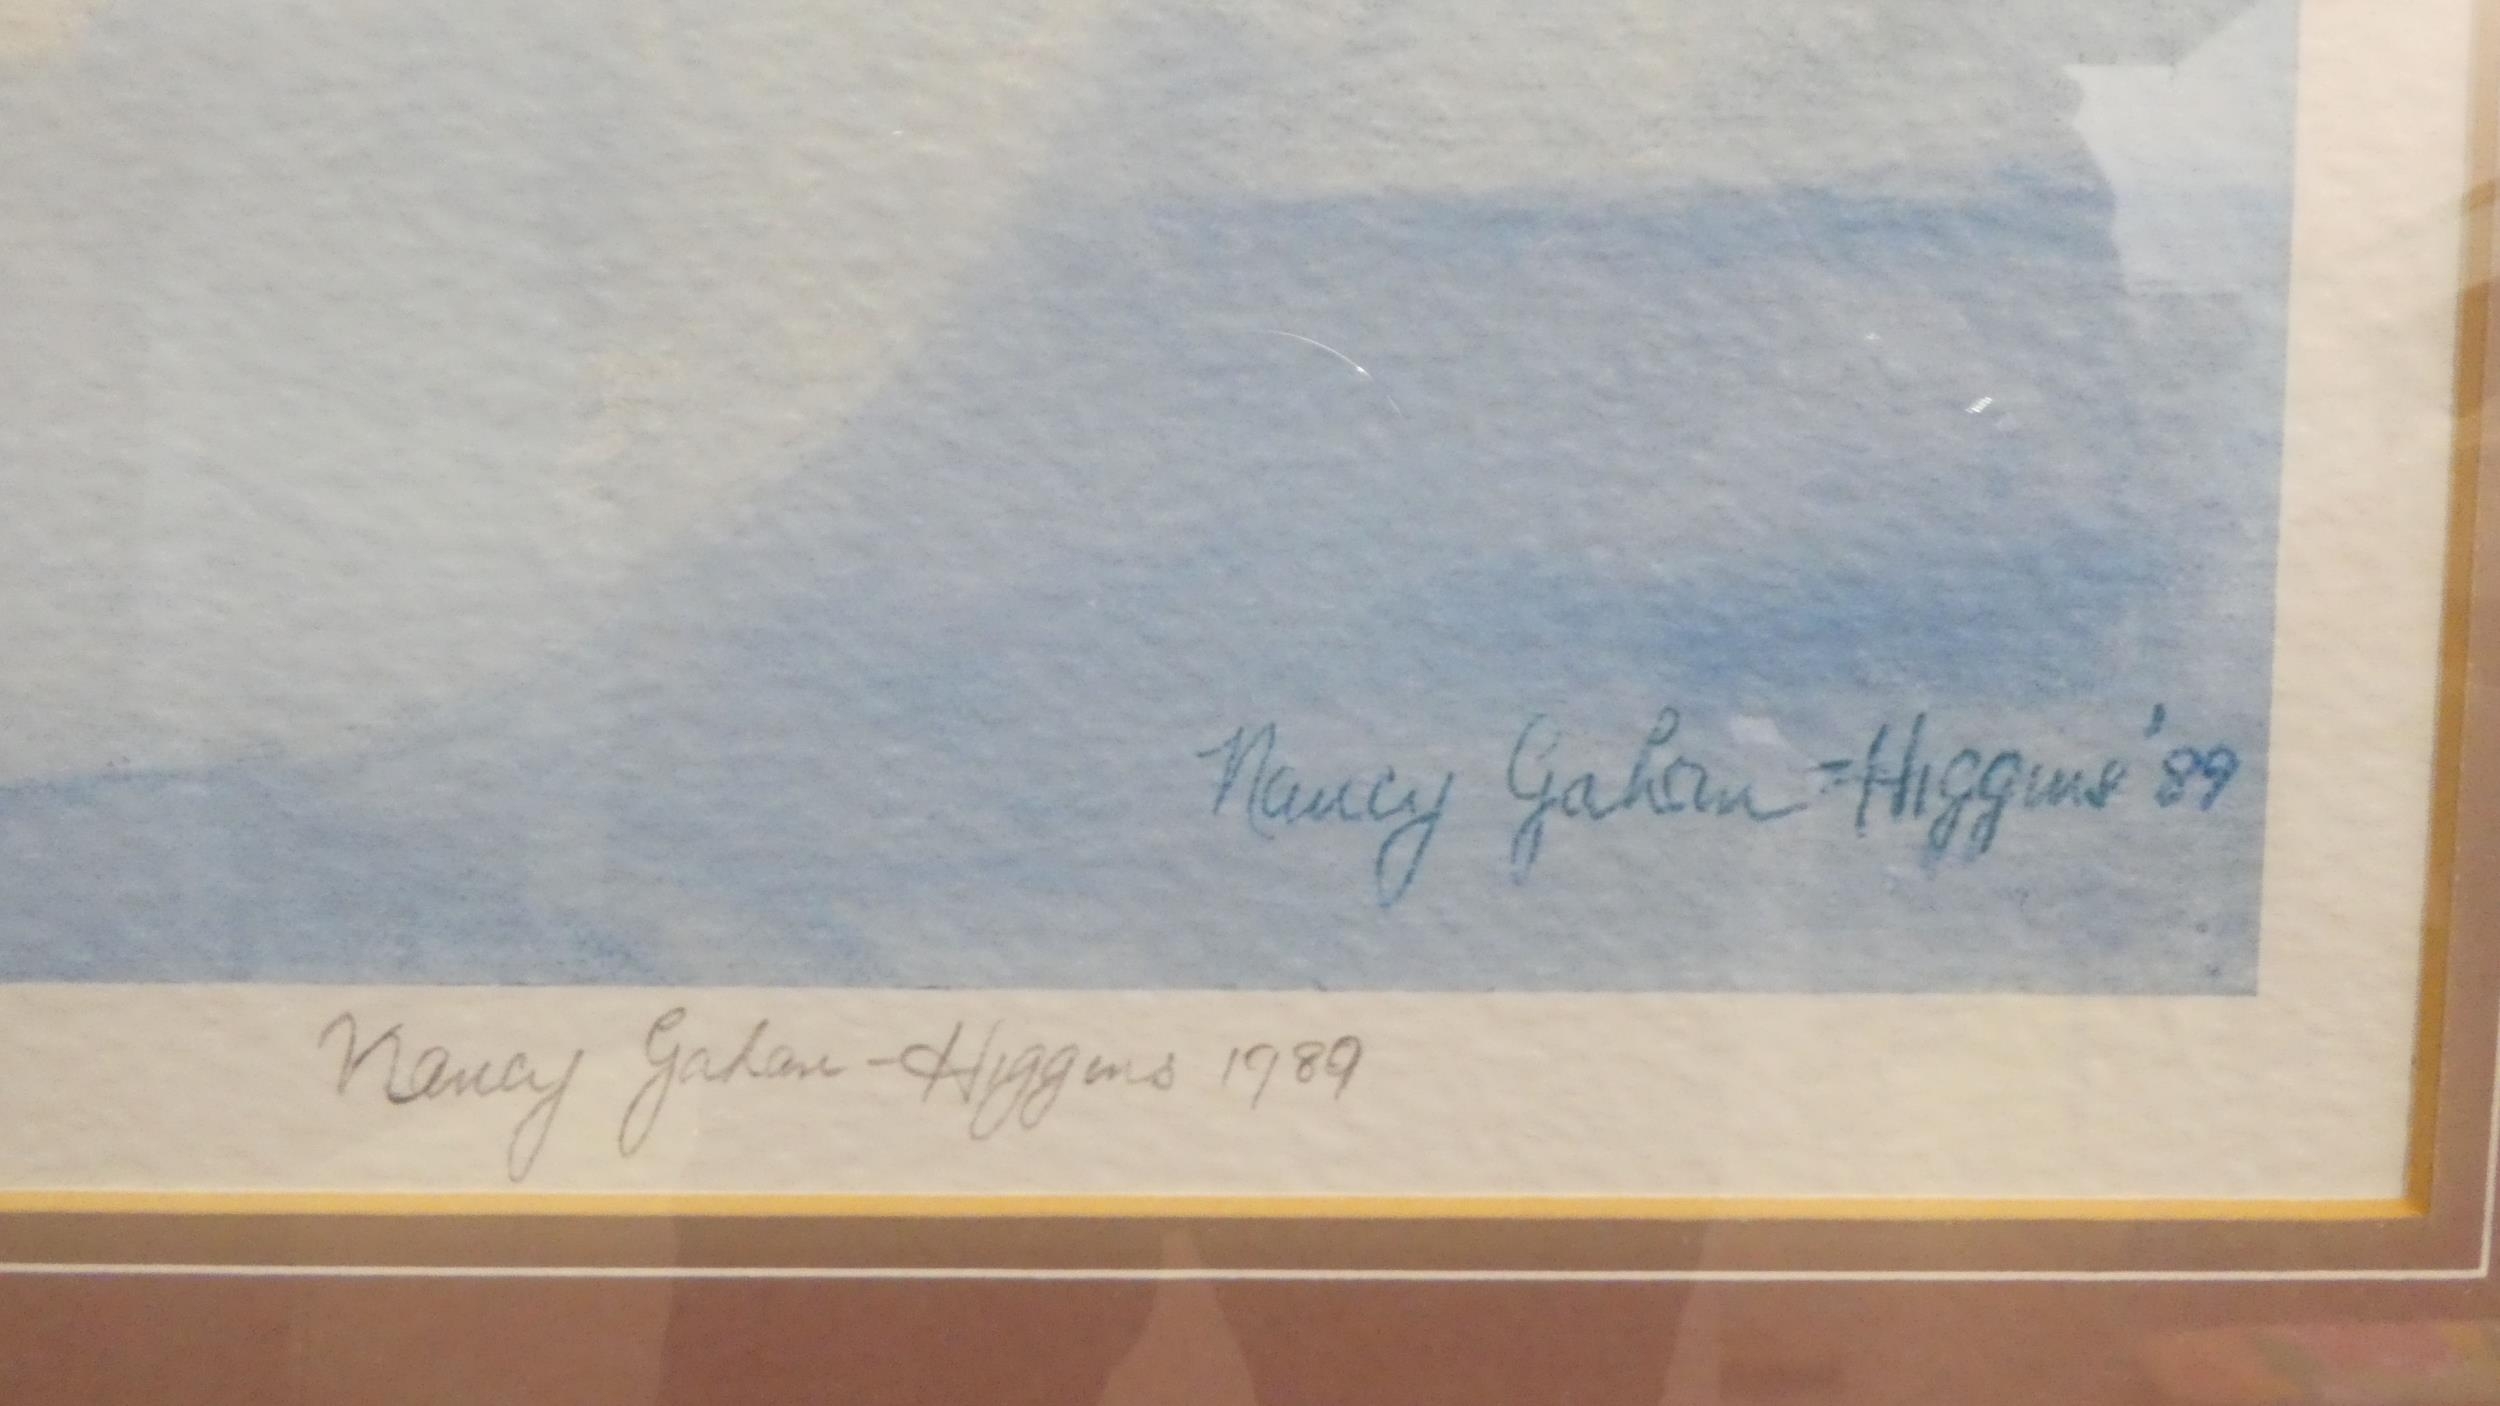 Nancy Gahan-Higgins '89
Nancy Gahan-Higgins 1989